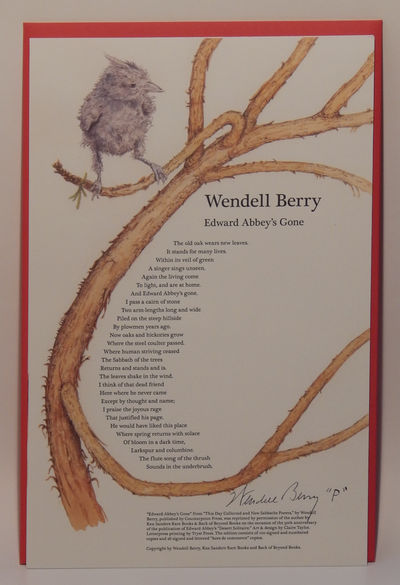 Wendell Berry
Edward Abbey's Gone
The old oak wears new leaves.
It stands for many lives.
Within its veil of green
A singer sings unseen.
Again the living come
To light, and are at home.
And Edward Abbey's gone.
I pass a cairn of stone
Two arm-lengths long and wide
Piled on the steep hillside
By plowmen years ago.
Now oaks and hickories grow
Where the steel coulter passed.
Where human striving ceased
The Sabbath of the trees
Returns and stands and is.
The leaves shake in the wind.
I think of that dead friend
Here where he never came
Except by thought and name;
I praise the joyous rage
That justified his page.
He would have liked this place
Where spring returns with solace
Of bloom in a dark time,
Larkspur and columbine.
The flute song of the thrush
Sounds in the underbrush.
Wendell Berry "P"
"Edward Abbey's Gone" from "This Day Collected and New Sabbaths Poems," by Wendell
Berry, published by Counterpoint Press, was reprinted by permission of the author by
Ken Sanders Rare Books & Back of Beyond Books on the occasion of the 50th anniversary
of the publication of Edward Abbey's "Desert Solitaire." Art & design by Claire Taylor.
Letterpress printing by Tryst Press. The edition consists of 100 signed and numbered
copies and 26 signed and lettered "hors de commerce" copies.
Copyright by Wendell Berry, Ken Sanders Rare Books and Back of Beyond Books.